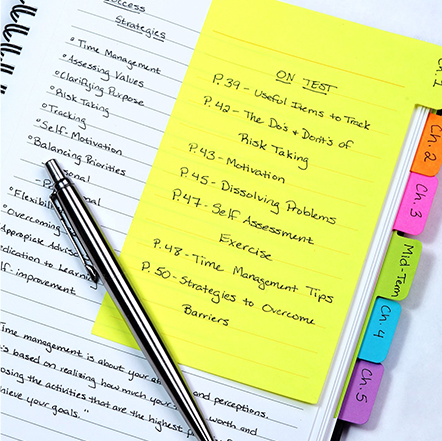 Success
Strategies
• Time Management
• Assessing Values
• Clarifying Purpose
• Risk Taking
• Tracking
• Self-Motivation
• Balancing Priorities
• Flexibility
• Overcoming
Appropriate Advise
to Learning
Self-improvement
Time management is about your and perceptions.
based on realizing how much your worth and
the activities that are the highest
achieve your goals."
ON TEST
P. 39 - Useful Items to Track
P. 42 - The Do's & Dont's of
Risk Taking
P. 43 - Motivation
P. 45 - Dissolving Problems
P. 47 - Self Assessment
Exercise
P. 48 - Time Management Tips
P. 50 - Strategies to Overcome
Barriers
Ch. 1
Ch. 2
Ch. 3
Mid-Term
Ch. 4
Ch. 5